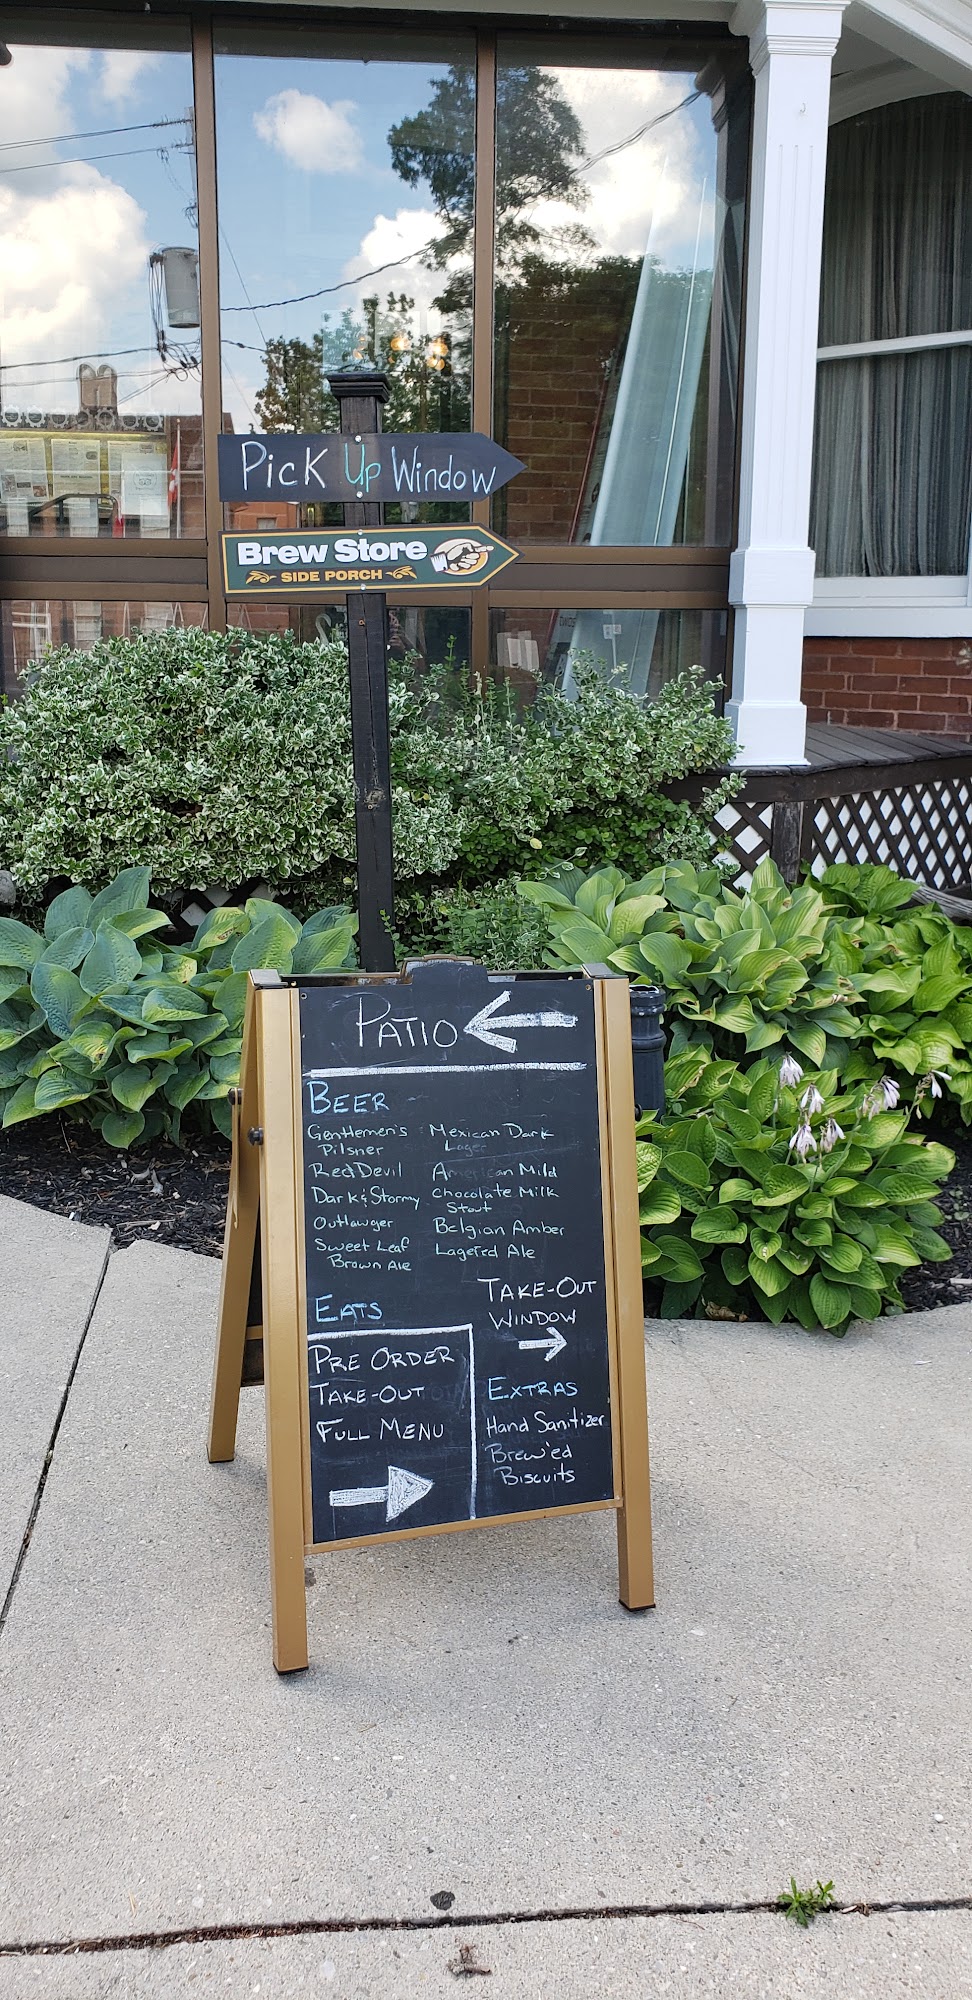 Pick Up Window
Brew Store
SIDE PORCH
PATIO
BEER
Gentlemen's
Pilsner
Red Devil
Dark & Stormy
Outlawger
Sweet Leaf
Brown Ale
Mexican Dark
Lager
American Mild
Chocolate Milk
Stout
Belgian Amber
Lagered Ale
EATS
PRE ORDER
TAKE-OUT
FULL MENU
TAKE-OUT
WINDOW
EXTRAS
Hand Sanitizer
Brew'ed
Biscuits